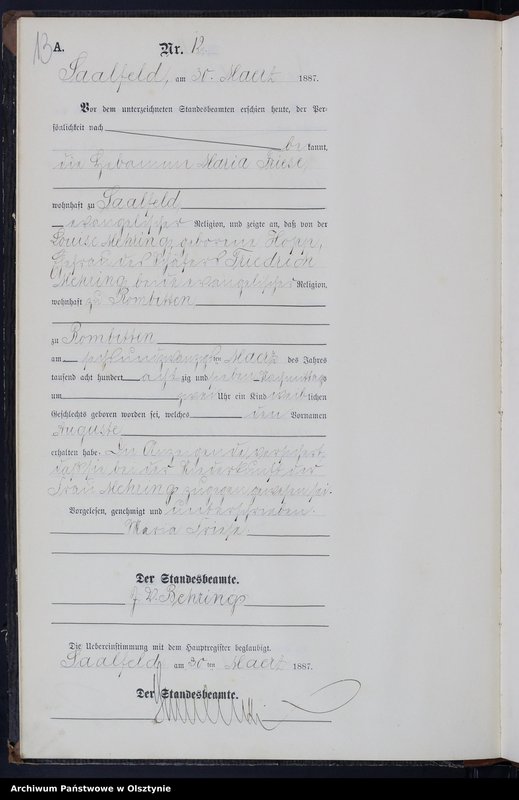 13
A.
Nr. 12.
Saalfeld, am 30. Maerz 1887.
Vor dem unterzeichneten Standesbeamten erschien heute, der Per-
sönlichkeit nach
be kannt,
die Hebamme Maria Friese,
wohnhaft zu Saalfeld
evangelischer Religion, und zeigte an, daß von der
Louise Mehring, geborene Hopp,
Ehefrau des Schäfers Friedrich
Mehring, beide evangelischer Religion,
wohnhaft zu Rombitten
zu Rombitten
am sechsundzwanzigsten Maerz des Jahres
tausend acht hundert acht zig und sieben Nachmittags
um zwei Uhr ein Kind weib lichen
Geschlechts geboren worden sei, welches den Vornamen
Auguste
erhalten habe. Die Anzeigende versichert,
daß sie bei der Niederkunft der
Frau Mehring zugegen gewesen sei.
Vorgelesen, genehmigt und unterschrieben.
Maria Friese.
Der Standesbeamte.
Behring
Die Uebereinstimmung mit dem Hauptregister beglaubigt.
Saalfeld am 30 ten Maerz 1887.
Der Standesbeamte.
Archiwum Państwowe w Olsztynie